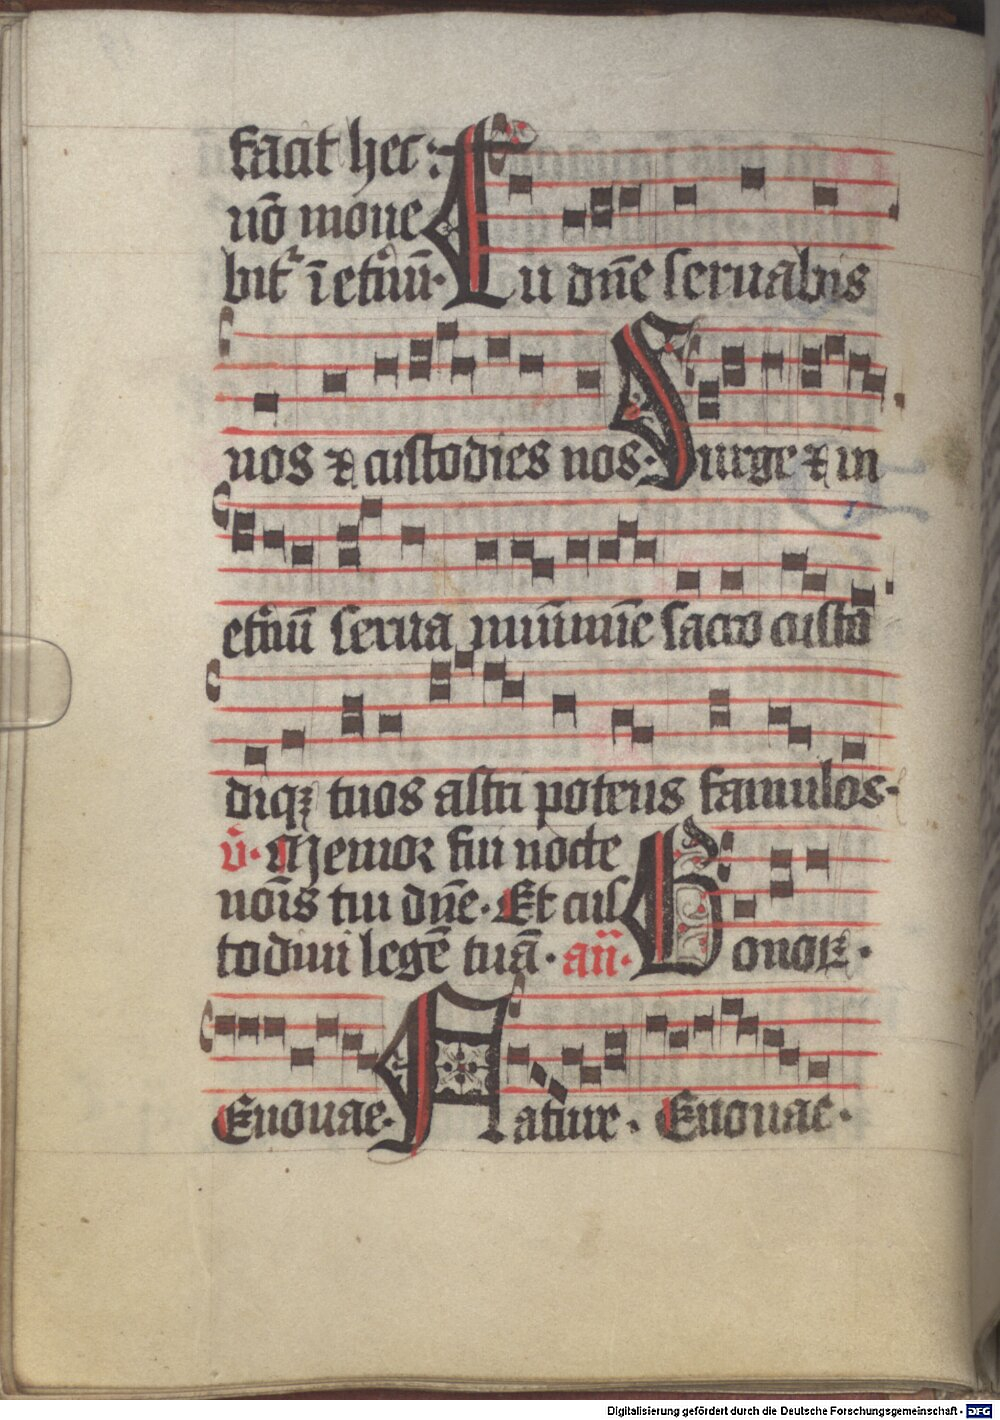 facit hec:
nō moue
bit᷑ ī etnū· Tu dn̄e seruabis
nos ⁊ custodies nos· Surge ⁊ in
etnū serua sacro custo
diqꝫ tuos astri potens famulos·
v̄· Memor fui nocte
nōis tui dn̄e· Et cus
todiui legē tuā· an̄· Bonoꝝ·
Euouae· Natiue· Euouae·
Digitalisierung gefördert durch die Deutsche Forschungsgemeinschaft - DFG